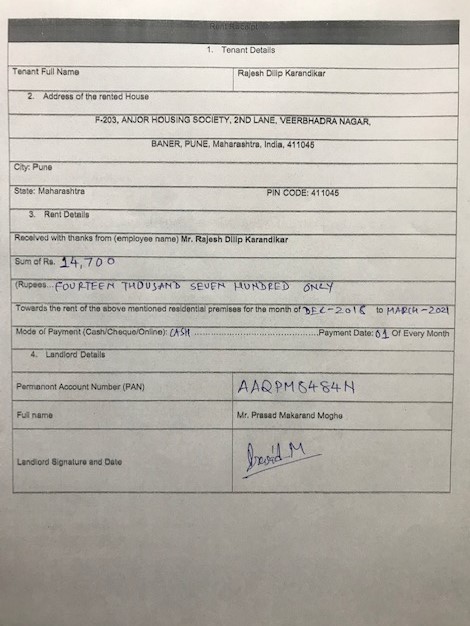 Rent Receipt
1. Tenant Details
Tenant Full Name Rajesh Dilip Karandikar
2. Address of the rented House
F-203, ANJOR HOUSING SOCIETY, 2ND LANE, VEERBHADRA NAGAR,
BANER, PUNE, Maharashtra, India, 411045
City: Pune
State: Maharashtra PIN CODE: 411045
3. Rent Details
Received with thanks from (employee name) Mr. Rajesh Dilip Karandikar
Sum of Rs. 14,700
(Rupees...FOURTEEN THOUSAND SEVEN HUNDRED ONLY
Towards the rent of the above mentioned residential premises for the month of DEC-2018 to MARCH-2021
Mode of Payment (Cash/Cheque/Online): CASH ........................................Payment Date: 01 Of Every Month
4. Landlord Details
Permanent Account Number (PAN) AAQPM8484N
Full name Mr. Prasad Makarand Moghe
Landlord Signature and Date